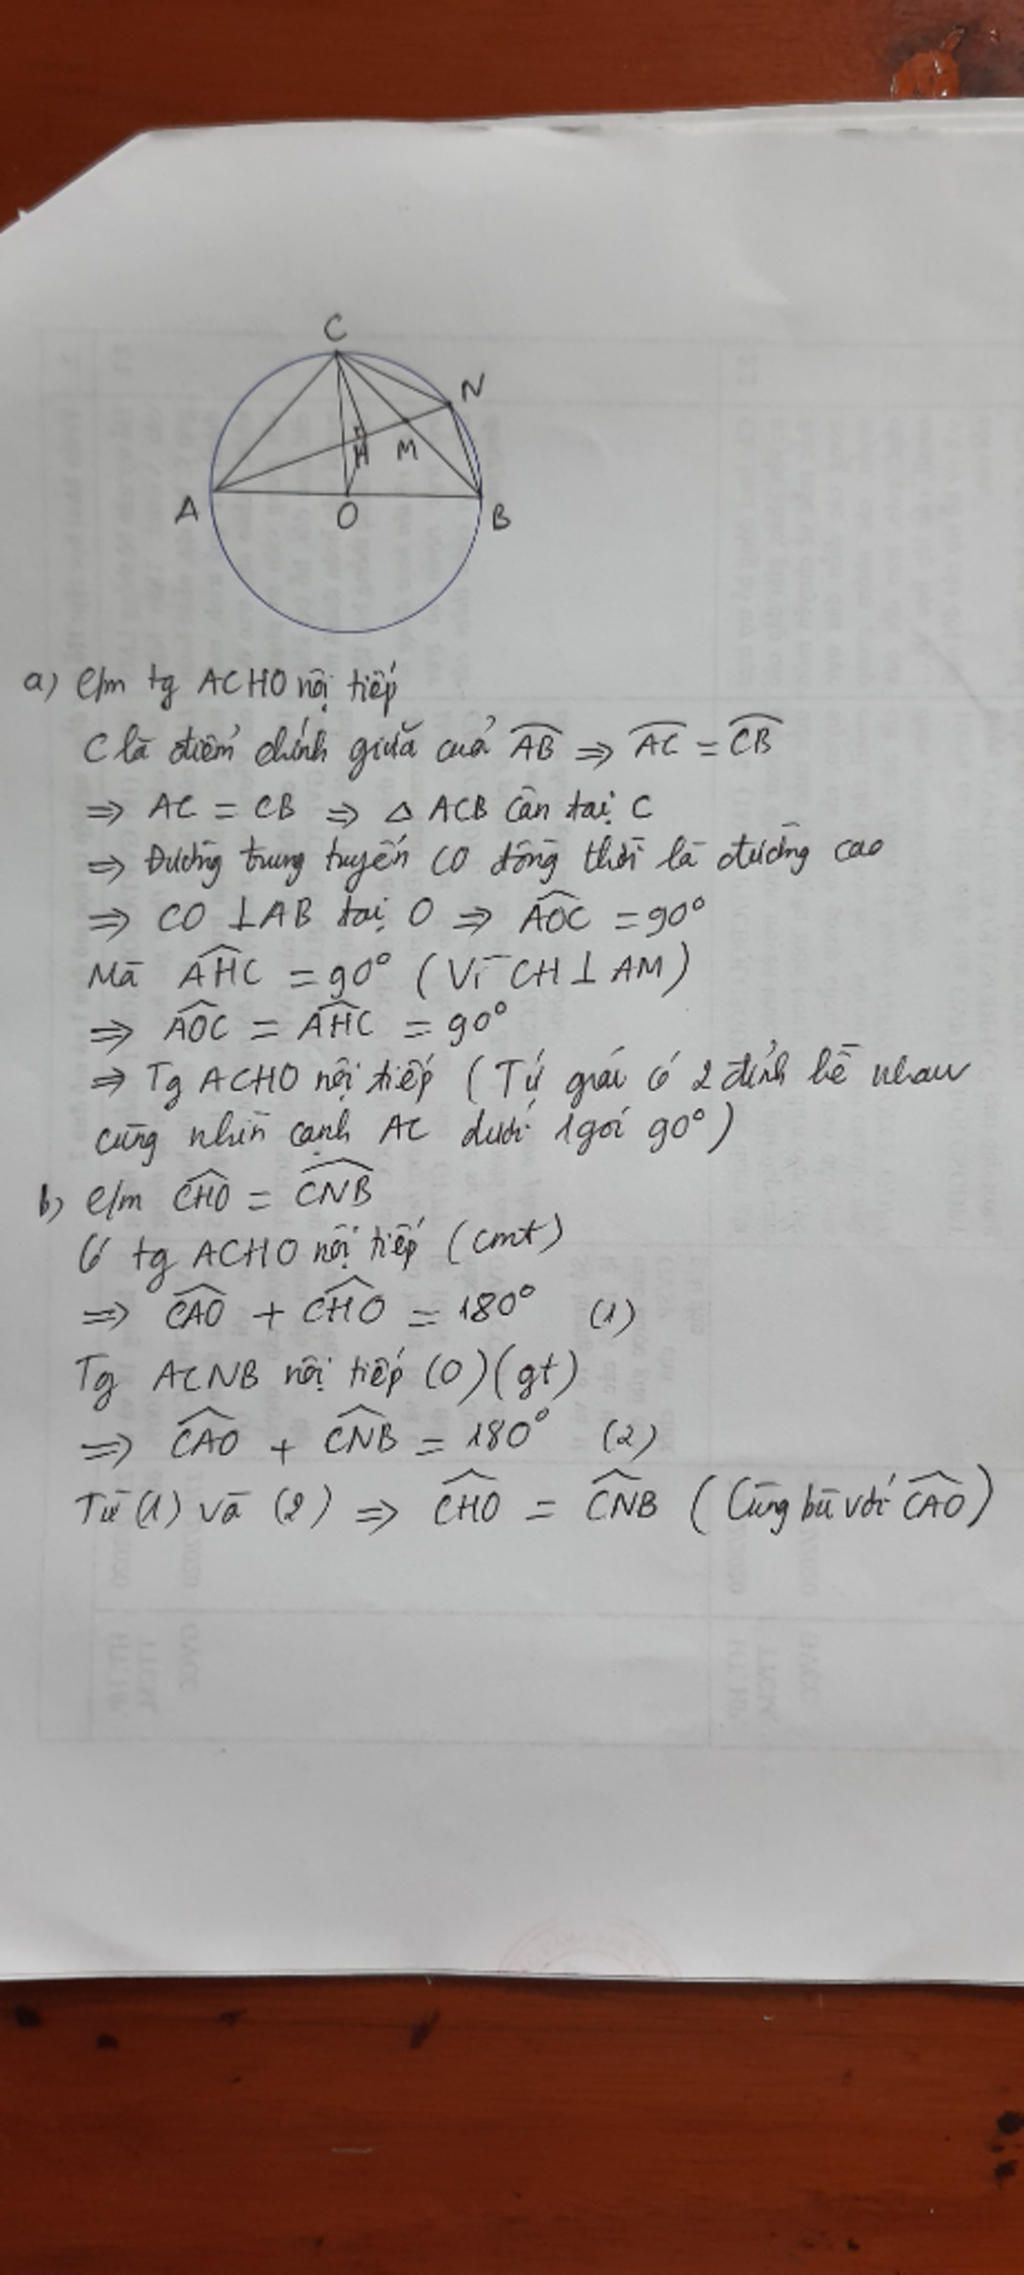 C
N
H
M
A
O
B
a) c/m tg ACHO nội tiếp
C là điểm chính giữa của AB ⇒ AC = CB
⇒ AC = CB ⇒ △ ACB cân tại C
⇒ Đường trung tuyến CO đồng thời là đường cao
⇒ CO ⊥ AB tại O ⇒ AOC = 90°
Mà AHC = 90° (Vì CH ⊥ AM)
⇒ AOC = AHC = 90°
⇒ Tg ACHO nội tiếp (Tứ giác có 2 đỉnh kề nhau
cùng nhìn cạnh AC dưới 1 góc 90°)
b) c/m CHO = CNB
Có tg ACHO nội tiếp (cmt)
⇒ CAO + CHO = 180° (1)
Tg ACNB nội tiếp (O) (gt)
⇒ CAO + CNB = 180° (2)
Từ (1) và (2) ⇒ CHO = CNB (Cùng bù với CAO)